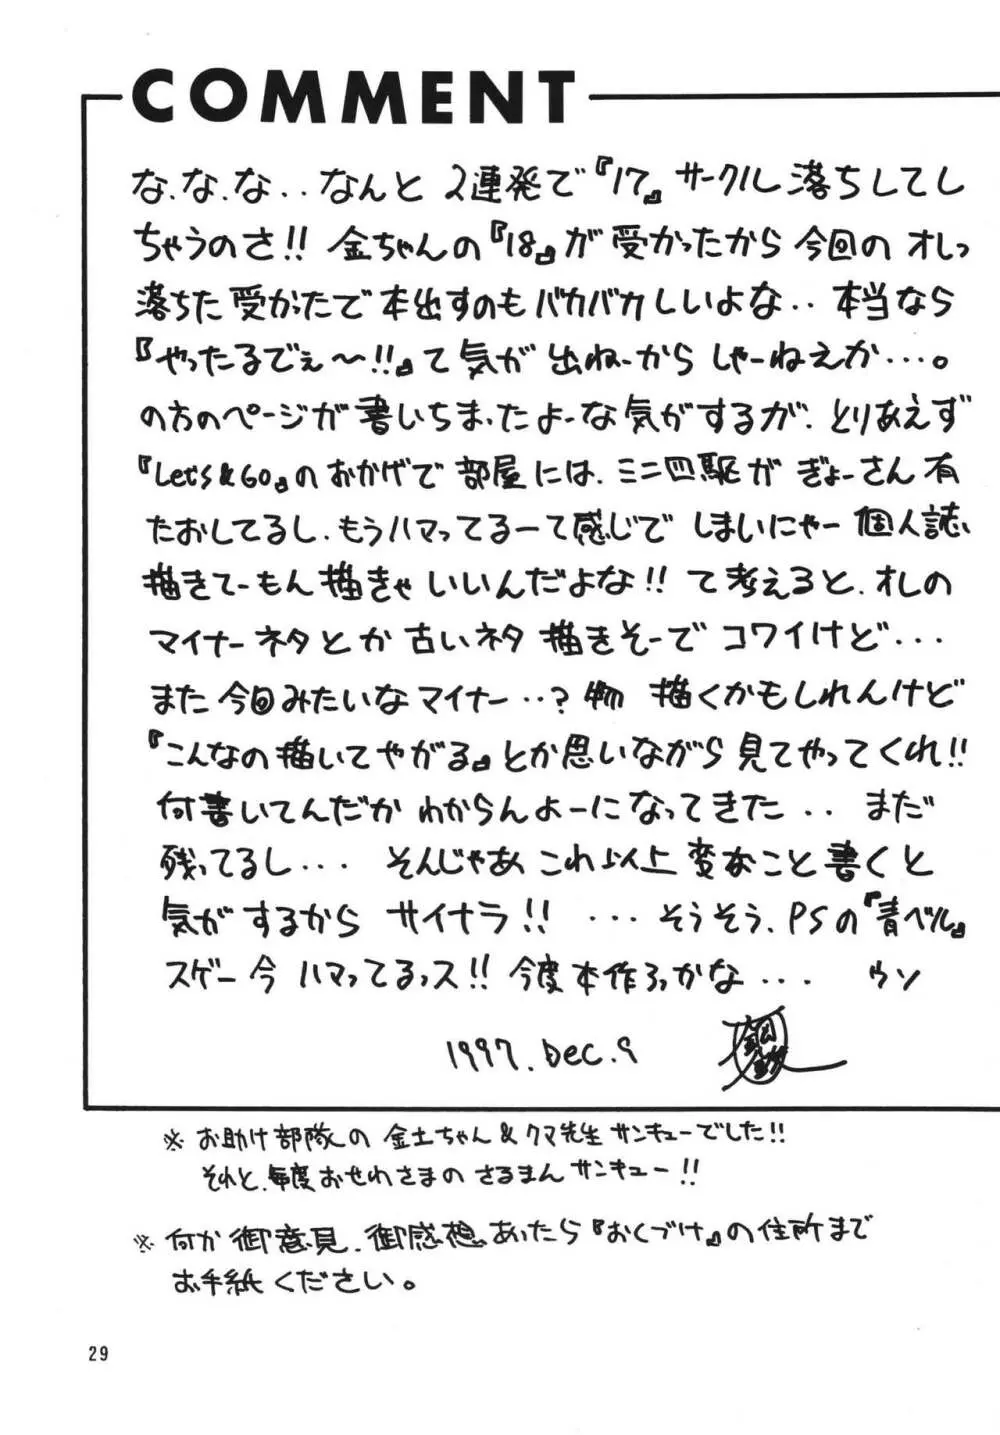 COMMENT
な、な、な‥なんと 2連発で『17』サークル落ちしてし
ちゃうのさ!! 金ちゃんの『18』が受かったから今回のオレっ
落ちた受かたで本出すのもバカバカしいよな‥本当なら
『やったるでぇ〜!!』て気が出ねーからしゃーねえか…。
の方のページが書いちまったよーな気がするが、とりあえず
『Let's&Go』のおかげで部屋には、ミニ四駆がぎょーさん有
たおしてるし、もうハマってるーて感じでしまいにゃー個人誌、
描きてーもん描きゃいいんだよな!! て考えると、オレの
マイナーネタとか古いネタ描きそーでコワイけど…
また今回みたいなマイナー‥?物 描くかもしれんけど
『こんなの描いてやがる』とか思いながら見てやってくれ!!
何書いてんだかわからんよーになってきた‥ まだ
残ってるし… そんじゃあこれ以上変なこと書くと
気がするからサイナラ!! …そうそう、PSの『青ベル』
スゲー今ハマってるっス!! 今度本作ろっかな… ウソ
1997. Dec. 9
※お助け部隊の金土ちゃん&クマ先生サンキューでした!!
それと、毎度おせわさまのさるまんサンキュー!!
※何か御意見、御感想あったら『おくづけ』の住所まで
お手紙ください。
29